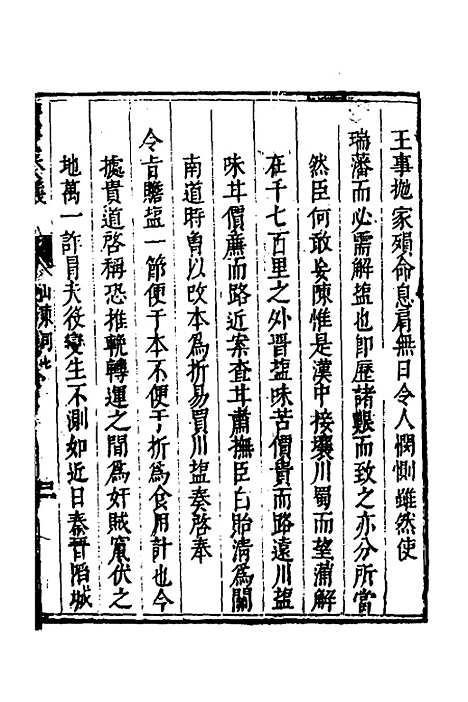 王事拋家殞命息肩無日令人憫惻雖然使
瑞藩而必需解塩也即歷諸艱而致之亦分所當
然臣何敢妄陳惟是漢中接壤川蜀而望蒲解
在千七百里之外晋塩味苦價貴而路遠川塩
味甘價廉而路近案查甘肅撫臣白貽清為關
南道時曽以改本為折易買川塩奏啓奉
令旨贍塩一節便于本不便于折為食用計也今
據貴道啓稱恐推輓轉運之間為奸賊窺伏之
地萬一詐冐夫役變生不測如近日秦晉陷城
山陝河